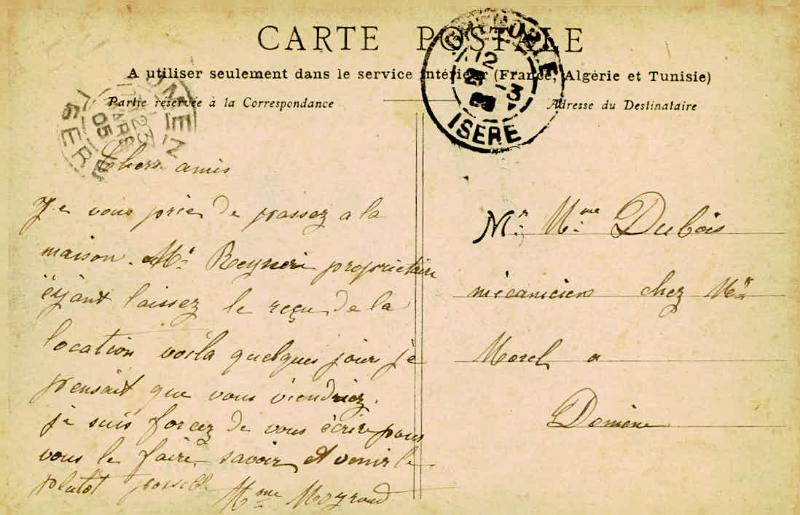 CARTE POSTALE
A utiliser seulement dans le service intérieur (France, Algérie et Tunisie)
Partie réservée à la Correspondance
Adresse du Destinataire
GRENOBLE
12
23 -3
05
ISERE
DOMENE
23
MARS
05
ISERE
Chers amis
Je vous prie de passez a la
maison. Mr propriétaire
éyant laissez le reçu de la
location voila quelques jours je
pensait que vous viendriez.
je suis forcez de vous écrire pour
vous le faire savoir et venir le
plutot possible
Mme
Mr Mme Dubois
mécanicien chez Mr
Morel a
Domène